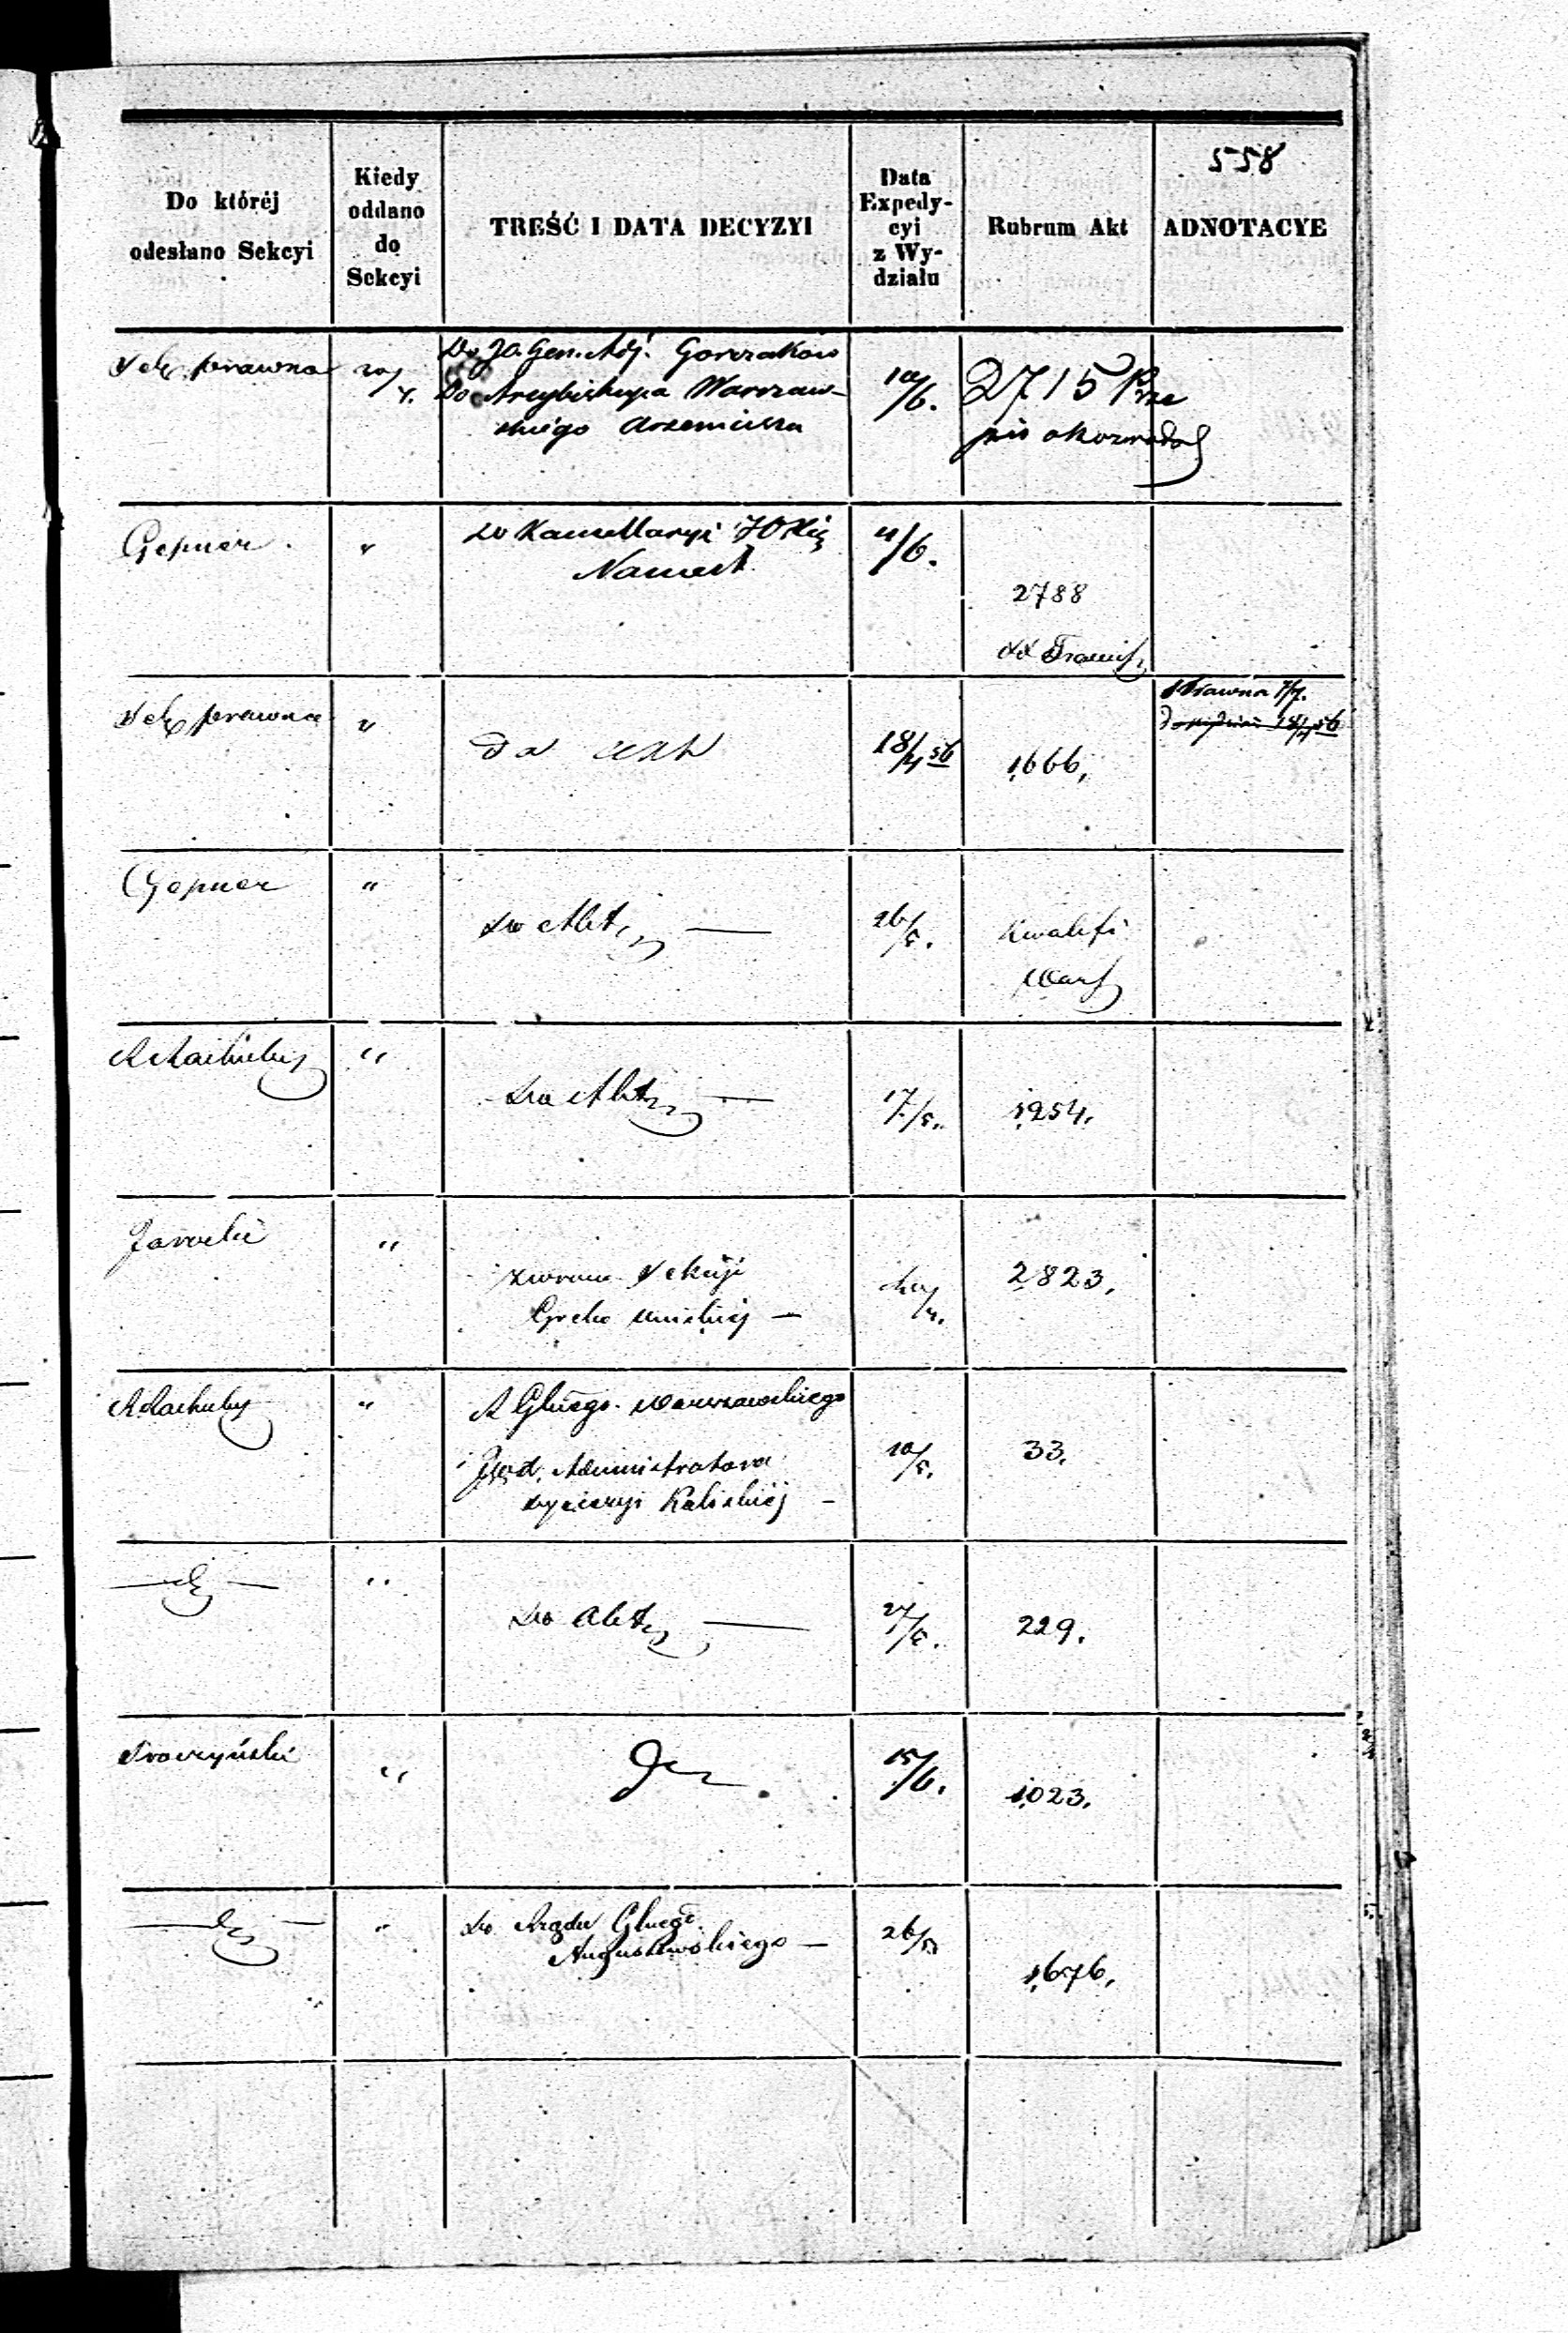 558
Do któréj
odesłano Sekcyi
Kiedy
oddano
do
Sekcyi
TREŚĆ I DATA DECYZYI
Data
Expedy-
cyi
z Wy-
działu
Rubrum Akt
ADNOTACYE
Sek. prawna
20/4.
Do JO. Gen. Adj. Gorczakow
Do Arcybiskupa Warszaw-
skiego Arseniusza
10/6.
2715 Prze
pis o Rozwodach
Gepner.
"
do Kancellaryi JO Xię
Namiest
11/6.
2788
Sek prawna
"
Do akt
18/4 56
1666,
Prawna 7/7.
18/4 56
Gepner
"
do Akt
26/5.
Kwalifi
Wars
"
Do Akt
17/5.
1254.
Jarocki
"
zwrócono Sekcyi
Greko Unickiej —
2823,
"
R Głnego Warszawskiego
i Administratora
dyecezyi Kaliskiej —
10/5.
33.
"
Do Akt
27/5.
229.
"
15/6.
1023.
"
do Rządu Głnego
Augustowskiego —
26/5
1676,